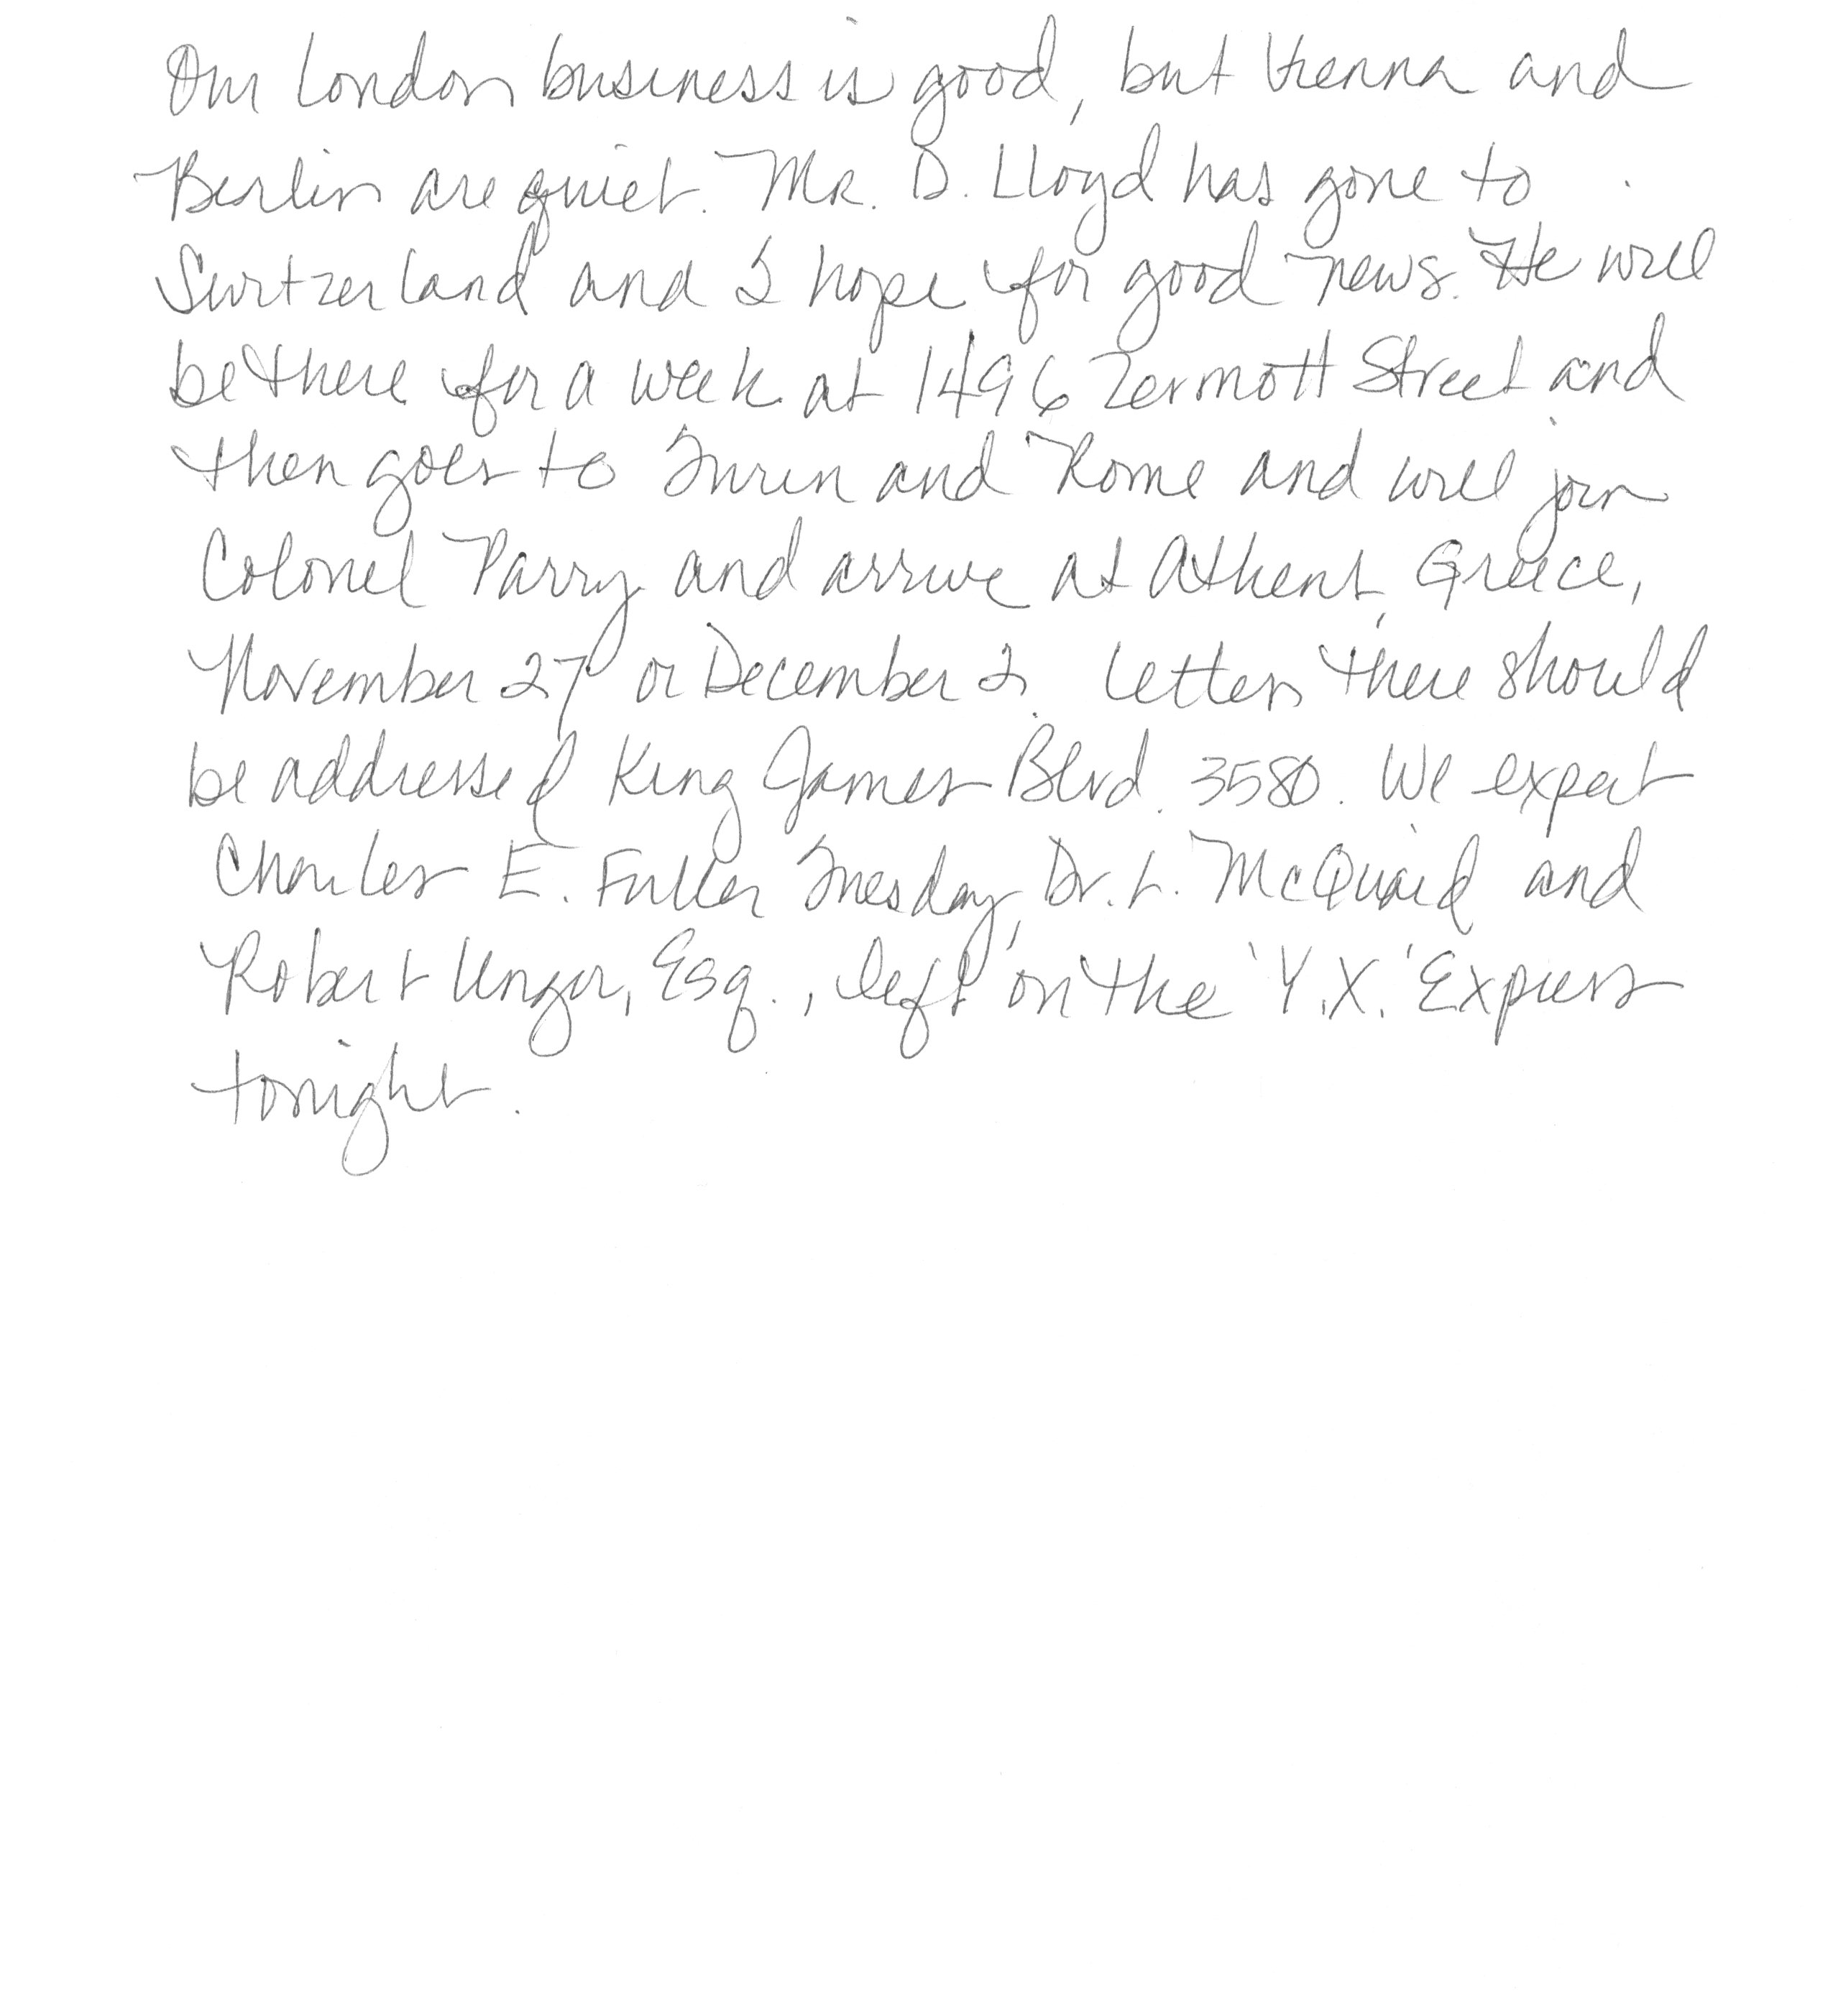 Our London business is good, but Vienna and
Berlin are quiet. Mr. D. Lloyd has gone to
Switzerland and I hope for good news. He will
be there for a week at 1496 Zermott Street and
then goes to Turin and Rome and will join
Colonel Parry and arrive at Athens, Greece,
November 27 or December 2. Letters there should
be addressed King James Blvd. 3580. We expect
Charles E. Fuller Tuesday, Dr. L. McQuaid and
Robert Unger, Esq., left on the 'Y.X.' Express
tonight.